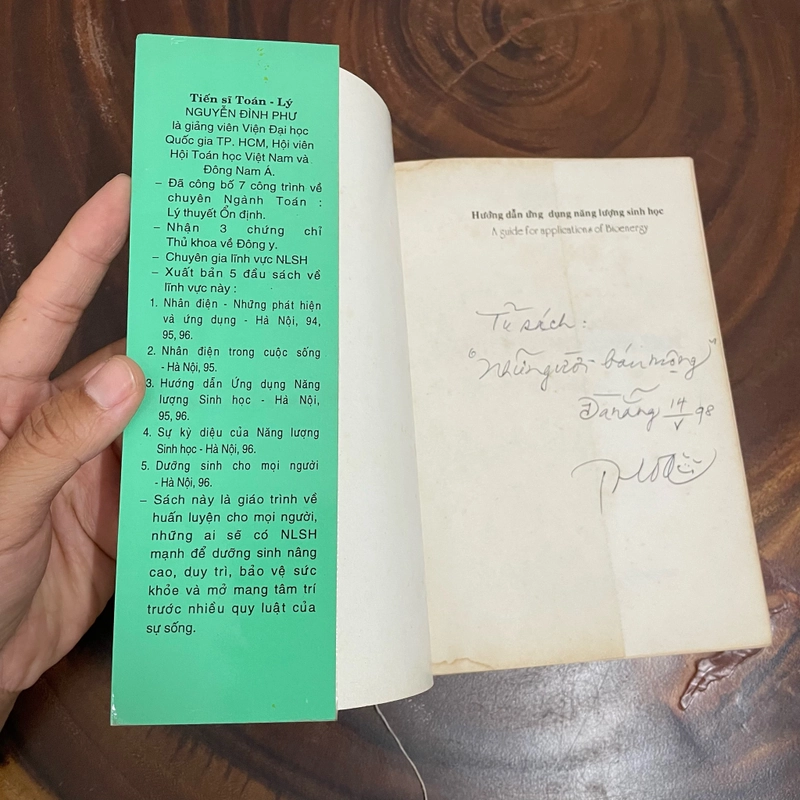 Tiến sĩ Toán - Lý
NGUYỄN ĐÌNH PHƯ
là giảng viên Viện Đại học
Quốc gia TP. HCM, Hội viên
Hội Toán học Việt Nam và
Đông Nam Á.
– Đã công bố 7 công trình về
chuyên Ngành Toán :
Lý thuyết Ổn định.
– Nhận 3 chứng chỉ
Thủ khoa về Đông y.
– Chuyên gia lĩnh vực NLSH
– Xuất bản 5 đầu sách về
lĩnh vực này :
1. Nhân điện - Những phát hiện
và ứng dụng - Hà Nội, 94,
95, 96.
2. Nhân điện trong cuộc sống
- Hà Nội, 95.
3. Hướng dẫn Ứng dụng Năng
lượng Sinh học - Hà Nội,
95, 96.
4. Sự kỳ diệu của Năng lượng
Sinh học - Hà Nội, 96.
5. Dưỡng sinh cho mọi người
- Hà Nội, 96.
– Sách này là giáo trình về
huấn luyện cho mọi người,
những ai sẽ có NLSH
mạnh để dưỡng sinh nâng
cao, duy trì, bảo vệ sức
khỏe và mở mang tâm trí
trước nhiều quy luật của
sự sống.
Hướng dẫn ứng dụng năng lượng sinh học
A guide for applications of Bioenergy
Tủ sách :
bán mộng"
Đà nẵng 14/V 98